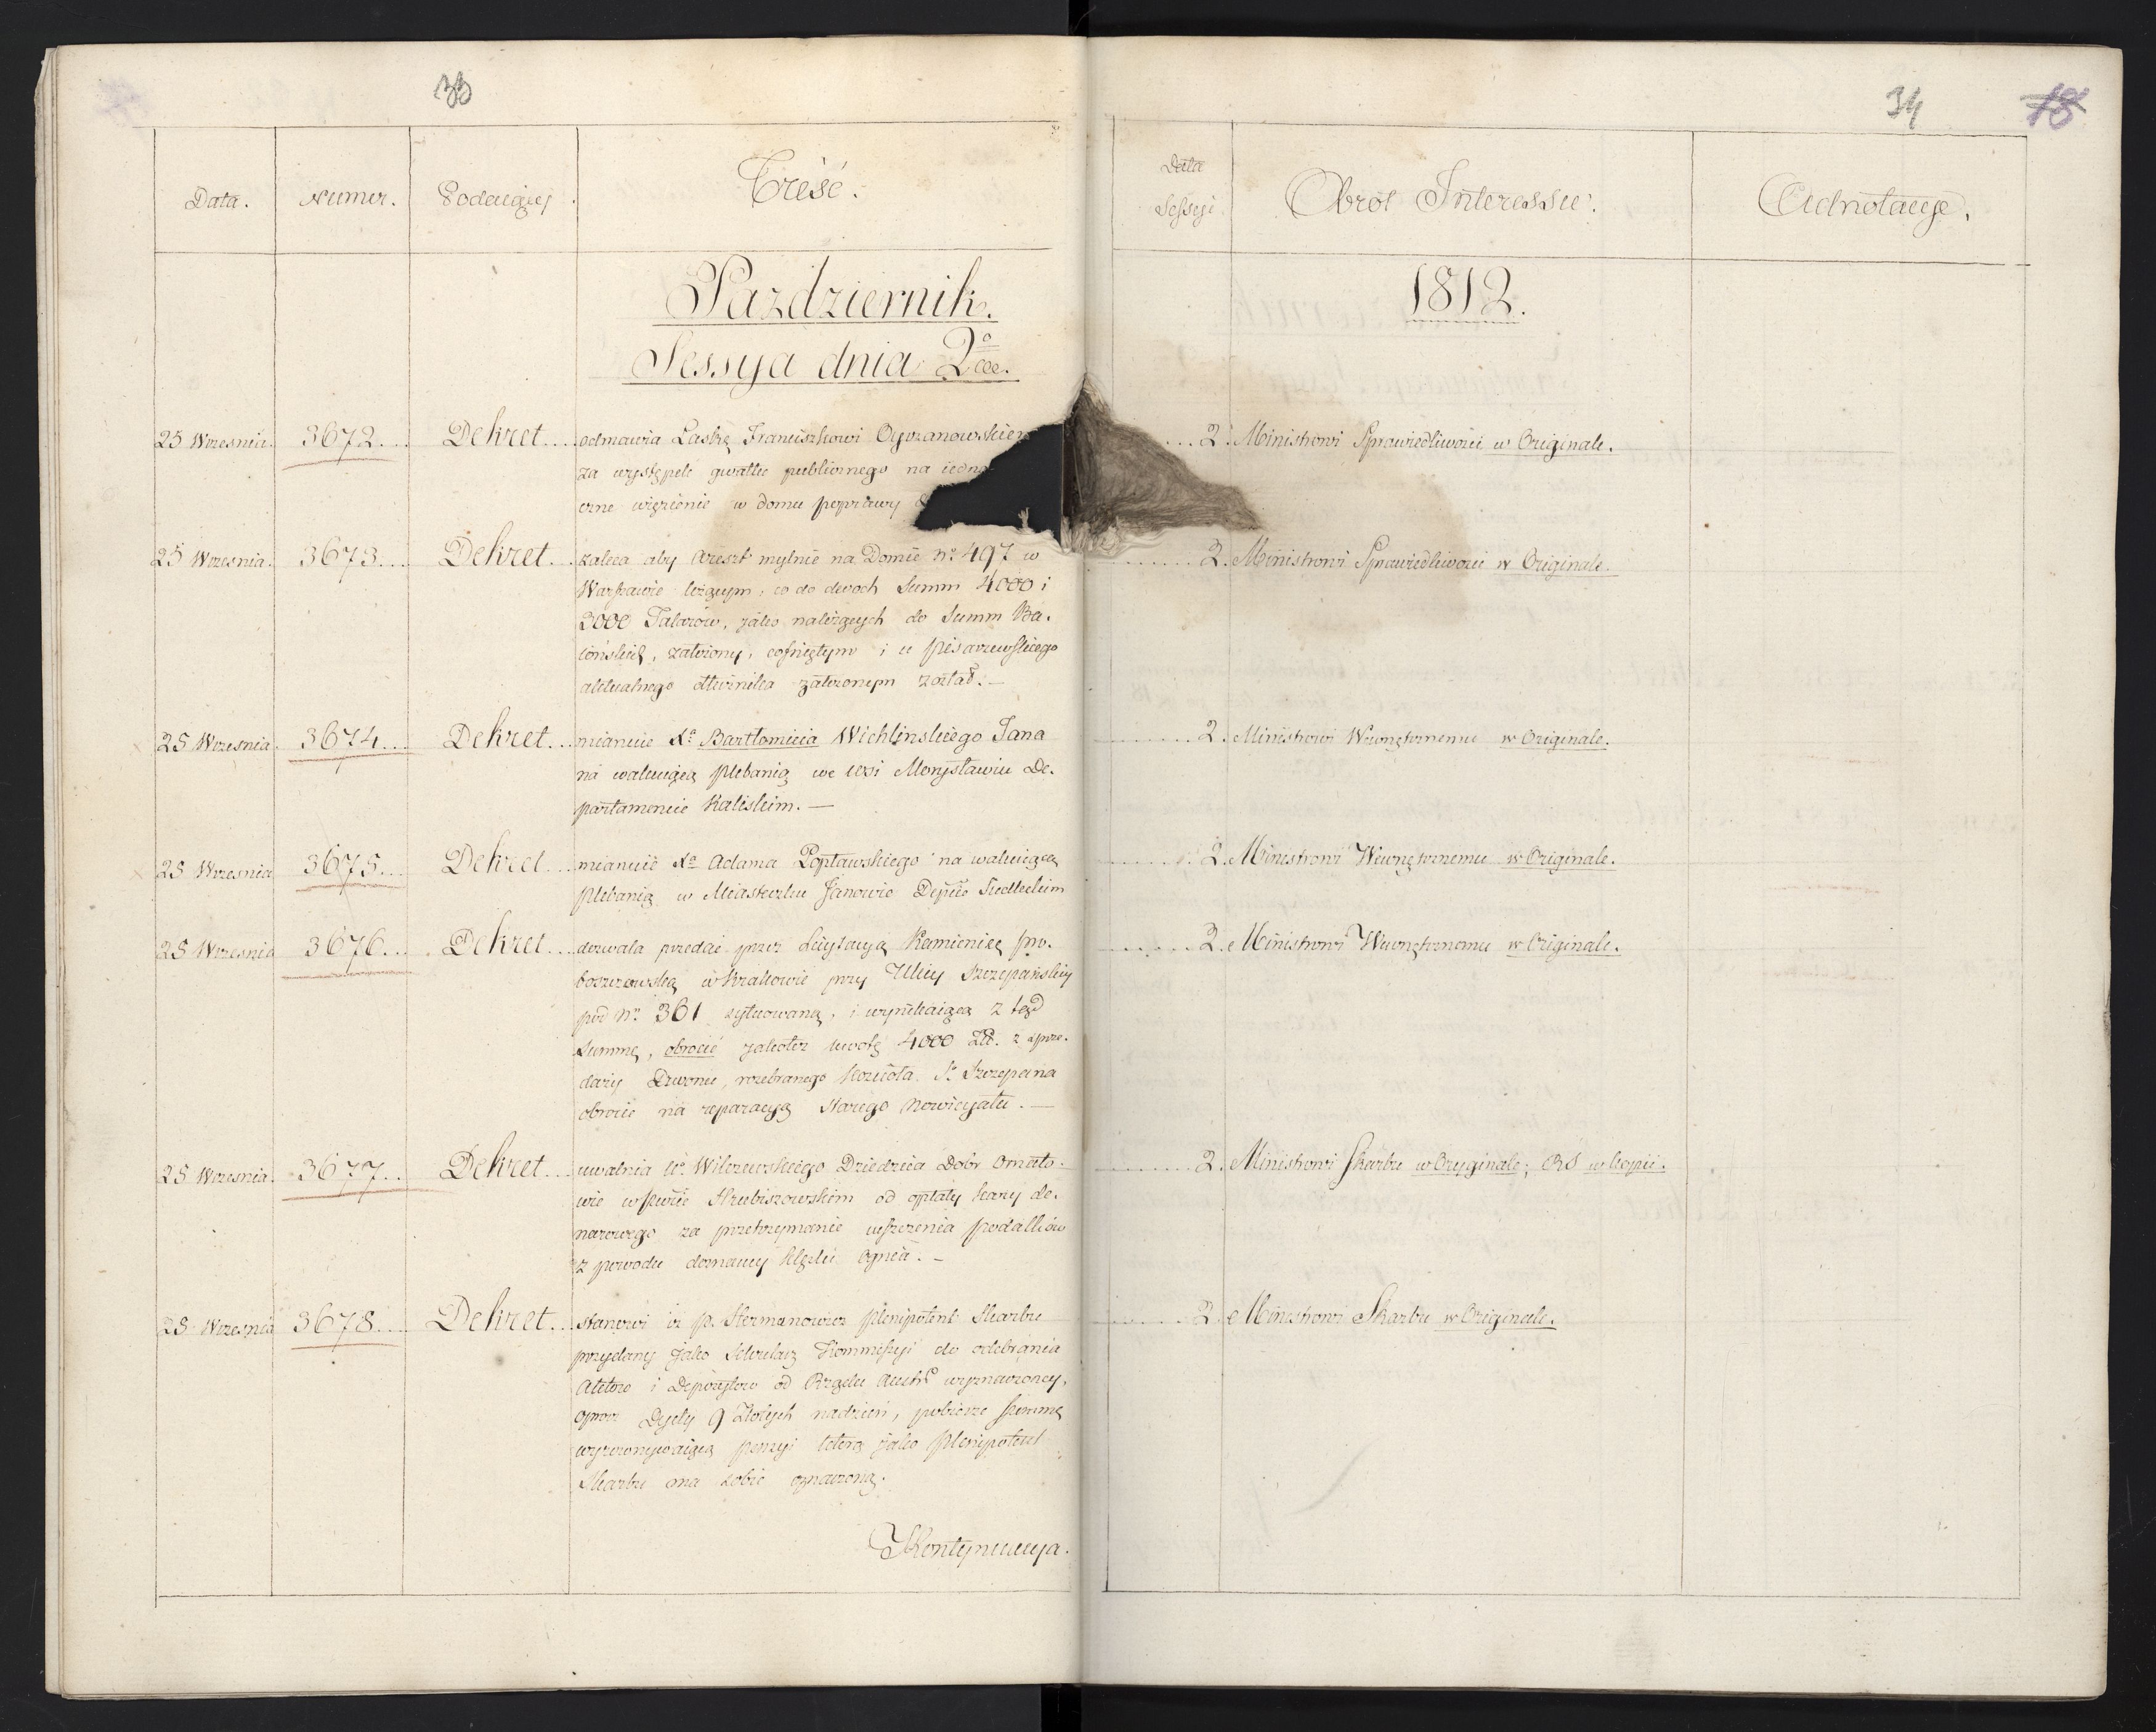 33
Data.
Numer.
Podaiący
Treść.
Pazdziernik.
Sessya dnia 2º
25 Wrzesnia. 3672... Dekret... odmawia Łaskę Franciszkowi
za występek gwałtu publicznego na iedno
czne więzienie w domu poprawy
25 Wrzesnia. 3673... Dekret... zaleca aby Areszt mylnie na Domie Nº 497 w
Warszawie leżącym, co do dwoch Summ 4000 i
2000 Talarów, jako należących do Summ Ba.
iońskich, założony, cofniętym i u
aktualnego dłużnika założonym został. —
25 Wrzesnia. 3674... Dekret... mianuie Xª Bartłomieia Wichlinskiego Jana
na wakuiącą plebanią we wsi Monysławiu De.
partamencie Kaliskim. —
25 Wrzesnia 3675... Dekret... mianuie Xª Adama Popławskiego na wakuiącą
plebanią w Miasteczku Janowie Depcie Siedleckim
25 Wrzesnia 3676... Dekret... dozwala przedać przez Licytacyą Kamienicę pro.
boszczowską w Krakowie przy Ulicy Szczepańskiey
pod Nº 361 sytuowaną, i wynikaiącą z tąd
Summę, obrocić jakoteż kwotę 4000 Zł. z sprze.
daży Dzwonu, rozebranego kościoła Sº Szczepana
obrocie na reparacyą starego Nowicyatu. —
25 Wrzesnia. 3677... Dekret... uwalnia Uº Wilczewskiego Dziedzica Dobr
wie w Pwcie Hrubiszowskim od opłaty kary de.
narowego za przetrzymanie uiszczenia podatków
z powodu doznaney klęski Ognia. —
25 Wrzesnia 3678... Dekret... stanowi iż P. Hermanowicz plenipotent Skarbu
przydany jako Sekretarz Kommissyi do odebrania
Aktow i Depozytow od Rządu Austr. wyznaczoney,
oprocz Dyety 9 Złotych nadzień, pobierze summę
wyrownywaiącą pensyi którą jako plenipotent
Skarbu ma sobie oznaczoną.
Kontynuacya.
34
18
Data
Sessyi
Obrót Interessu.
Adnotacye.
1812.
... 2. Ministrowi Sprawiedliwości w Originale.
... 2. Ministrowi Sprawiedliwości w Originale.
... 2. Ministrowi Wewnętrznemu w Originale.
... 2. Ministrowi Wewnętrznemu w Originale.
... 2. Ministrowi Wewnętrznemu w Originale.
... 2. Ministrowi Skarbu w Oryginale; w kopii.
... 2. Ministrowi Skarbu w Originale.